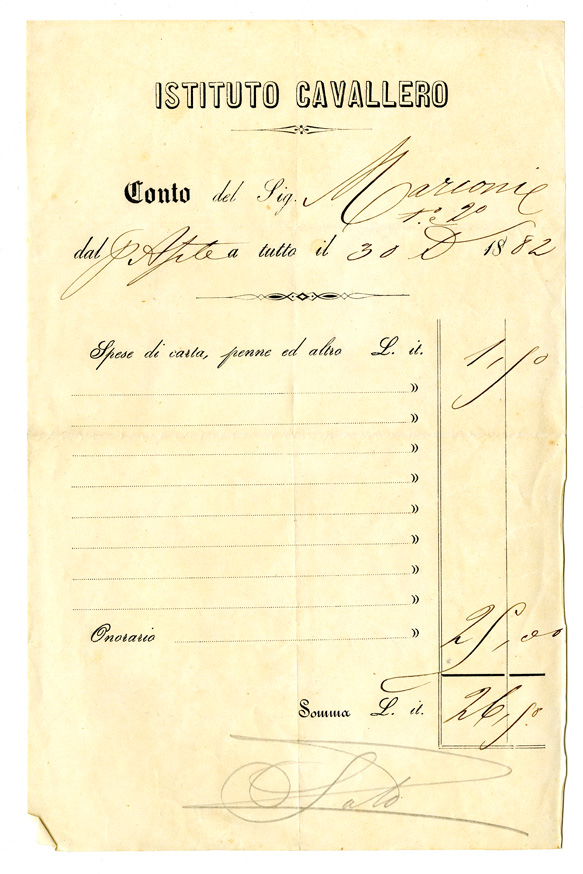 ISTITUTO CAVALLERO
Conto del Sig. Marconi
1º e 2º
dal a tutto il 30 D 1882
Spese di carta, penne ed altro L. it. 1,50
»
»
»
»
»
»
»
»
Onorario » 25,00
Somma L. it. 26,50